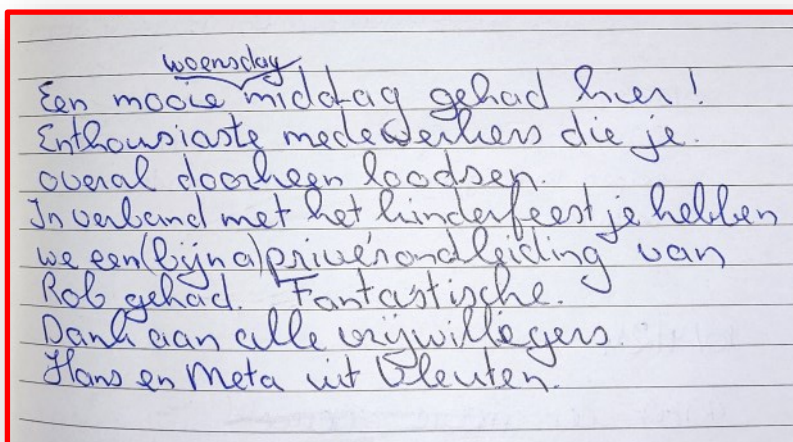 woensdag
Een mooie middag gehad hier!
Enthousiaste medewerkers die je
overal doorheen loodsen.
In verband met het kinderfeestje hebben
we een (bijna) privérondleiding van
Rob gehad. Fantastische.
Dank aan alle vrijwilligers.
Hans en Meta uit Vleuten.